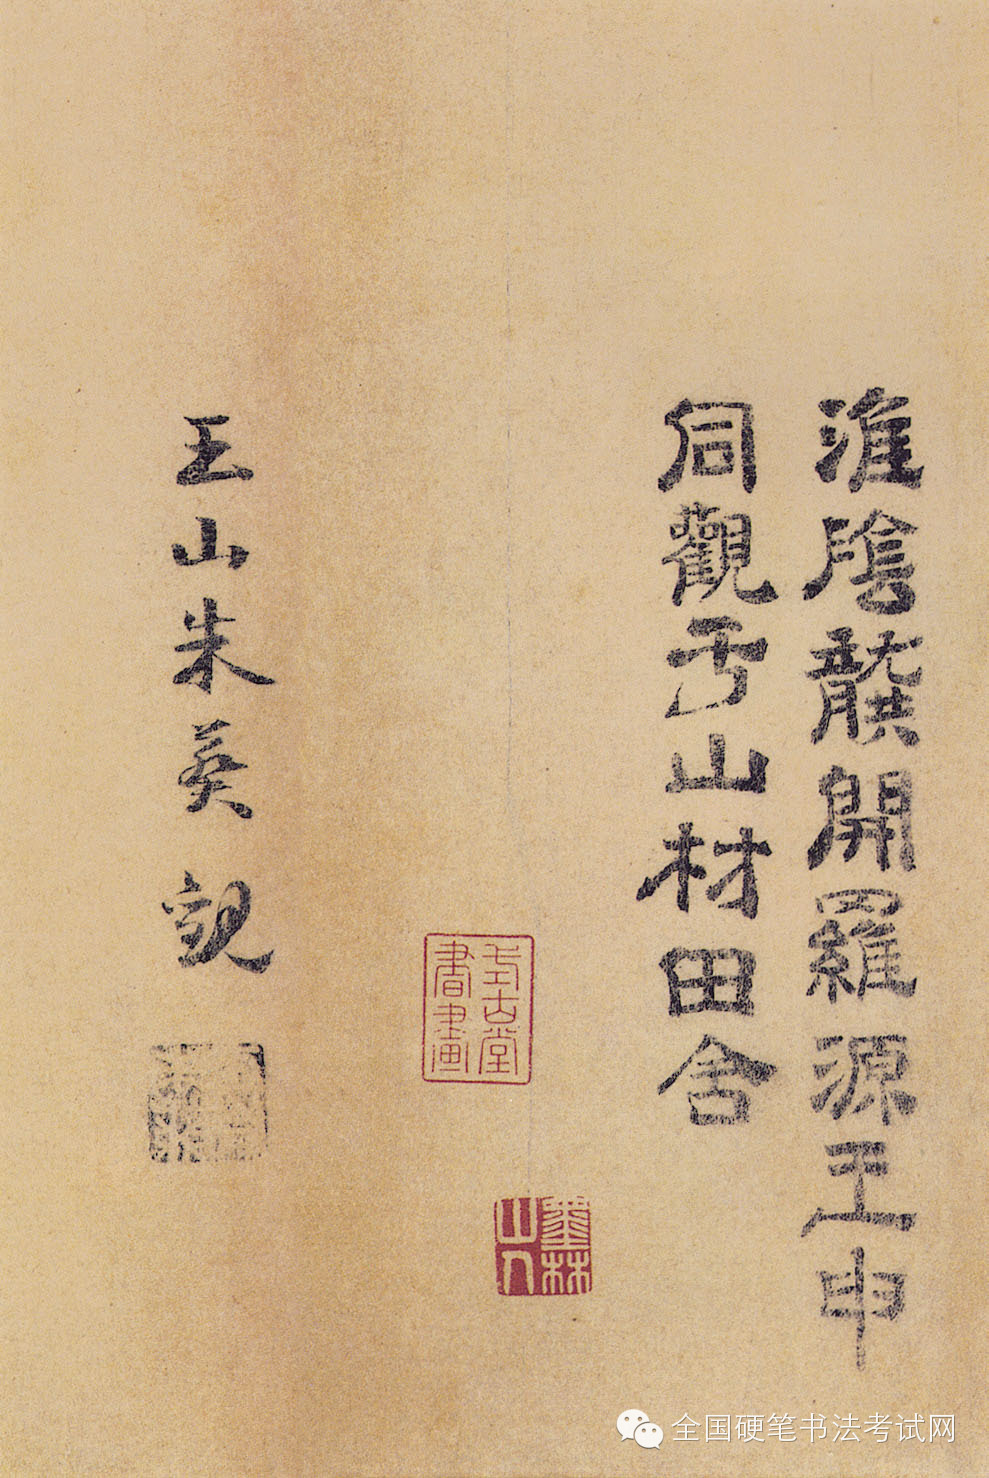 淮陰龔開羅源王申
同觀于山村田舍
式古堂
書畫
墨林
山人
玉山朱葵觀
全国硬笔书法考试网